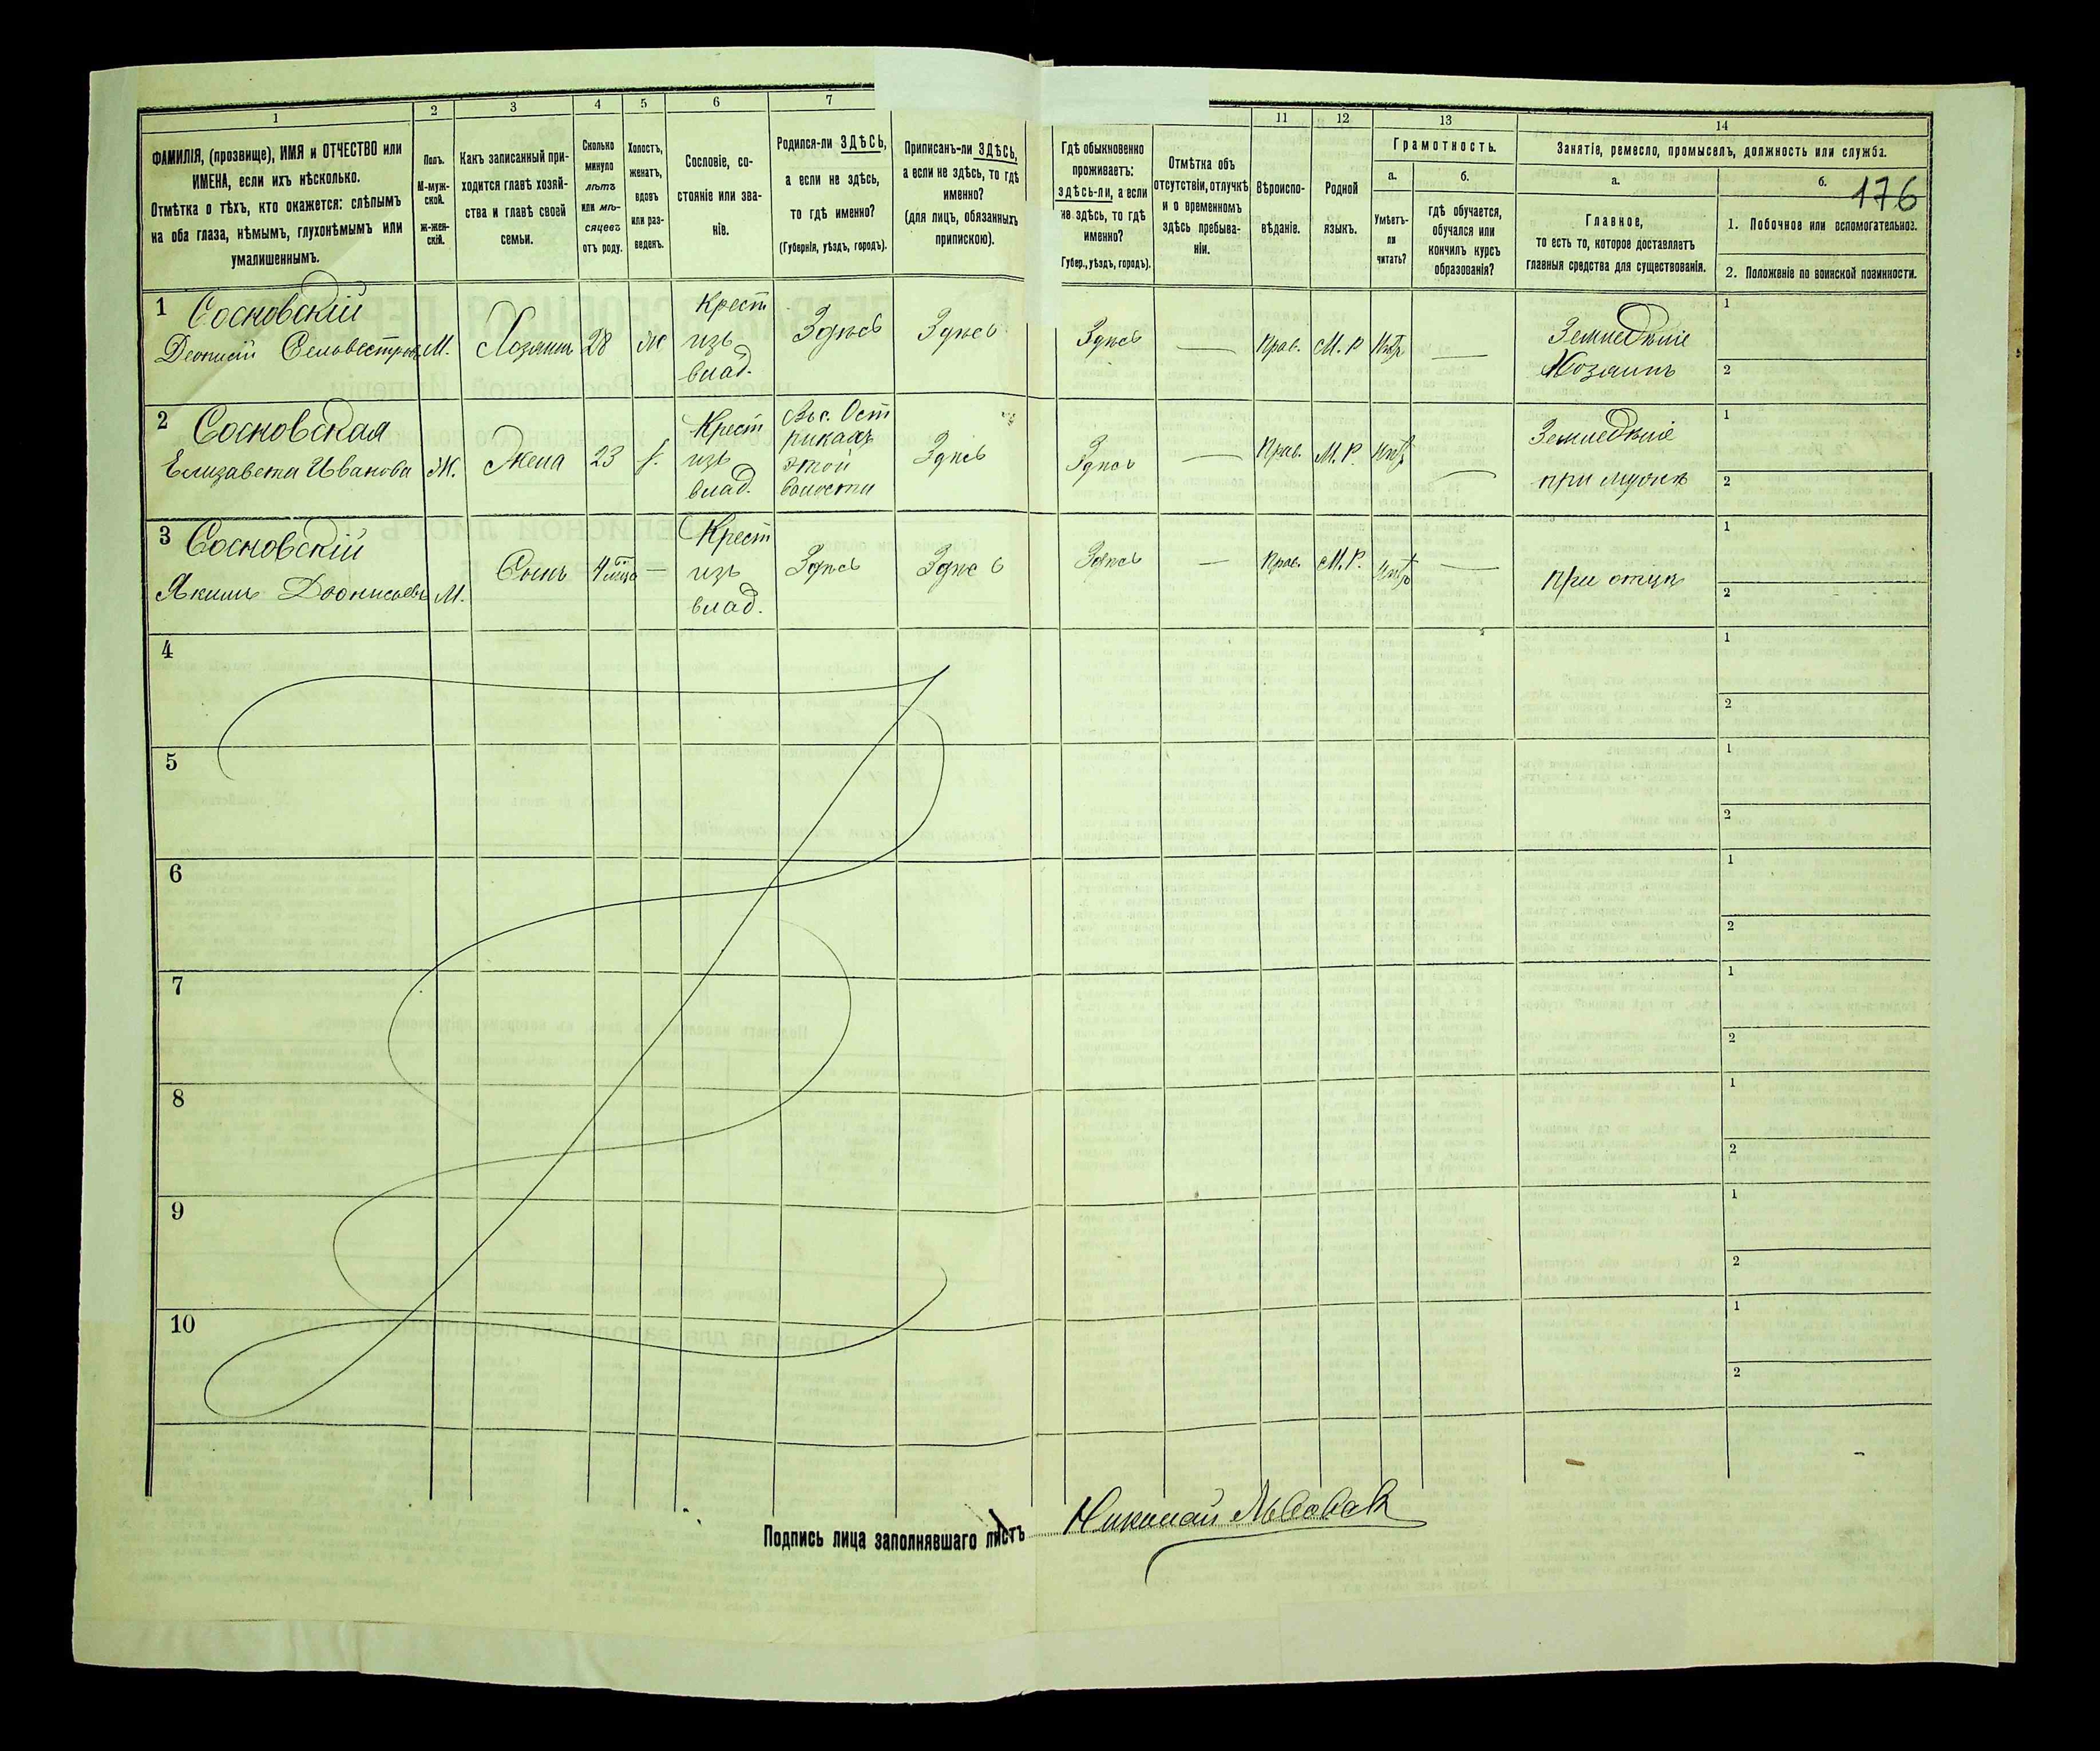 1 2 3 4 5 6 7 11 12 13 14
ФАМИЛІЯ, (прозвище), ИМЯ и ОТЧЕСТВО или
ИМЕНА, если ихъ нѣсколько.
Отмѣтка о тѣхъ, кто окажется: слѣпымъ
на оба глаза, нѣмымъ, глухонѣмымъ или
умалишеннымъ.
Полъ.
М-муж-
ской.
Ж-жен-
скій.
Какъ записанный при-
ходится главѣ хозяй-
ства и главѣ своей
семьи.
Сколько
минуло
лѣтъ
или мѣ-
сяцевъ
отъ роду.
Холостъ,
женатъ,
вдовъ
или раз-
веденъ.
Сословіе, со-
стояніе или зва-
ніе.
Родился-ли ЗДѢСЬ,
а если не здѣсь,
то гдѣ именно?
(Губернія, уѣздъ, городъ).
Приписанъ-ли ЗДѢСЬ,
а если не здѣсь, то гдѣ
именно?
(для лицъ, обязанныхъ
припискою).
Гдѣ обыкновенно
проживаетъ:
здѣсь-ли, а если
не здѣсь, то гдѣ
именно?
Губер., уѣздъ, городъ).
Отмѣтка объ
отсутствіи, отлучкѣ
и о временномъ
здѣсь пребыва-
ніи.
Вѣроиспо-
вѣданіе.
Родной
языкъ.
Грамотность.
а.
Умѣетъ-
ли
читать?
б.
гдѣ обучается,
обучался или
кончилъ курсъ
образованія?
Занятіе, ремесло, промыселъ, должность или служба.
а.
Главное,
то есть то, которое доставляетъ
главныя средства для существованія.
б.
176
1. Побочное или вспомогательное.
2. Положеніе по воинской повинности.
1 Сосновскій
Деонисій Сельвестровъ М. Хозяинъ 28 ж Крест изъ влад. Здѣсь Здѣсь Здѣсь — Прав. М. Р. Нѣтъ — Земледѣліе Хозяинъ 1 2
2 Сосновская
Елизавета Иванова Ж. Жена 23 Крест изъ влад. этой волости Здѣсь Здѣсь — Прав. М. Р. Нѣтъ — Земледѣліе при мужѣ 1 2
3 Сосновскій
Якимъ Деонисіевъ М. Сынъ — Крест изъ влад. Здѣсь Здѣсь Здѣсь — Прав. М. Р. Нѣтъ — при отцѣ 1 2
4 1 2
5 1 2
6 1 2
7 1 2
8 1 2
9 1 2
10 1 2
Подпись лица заполнявшаго листъ Николай